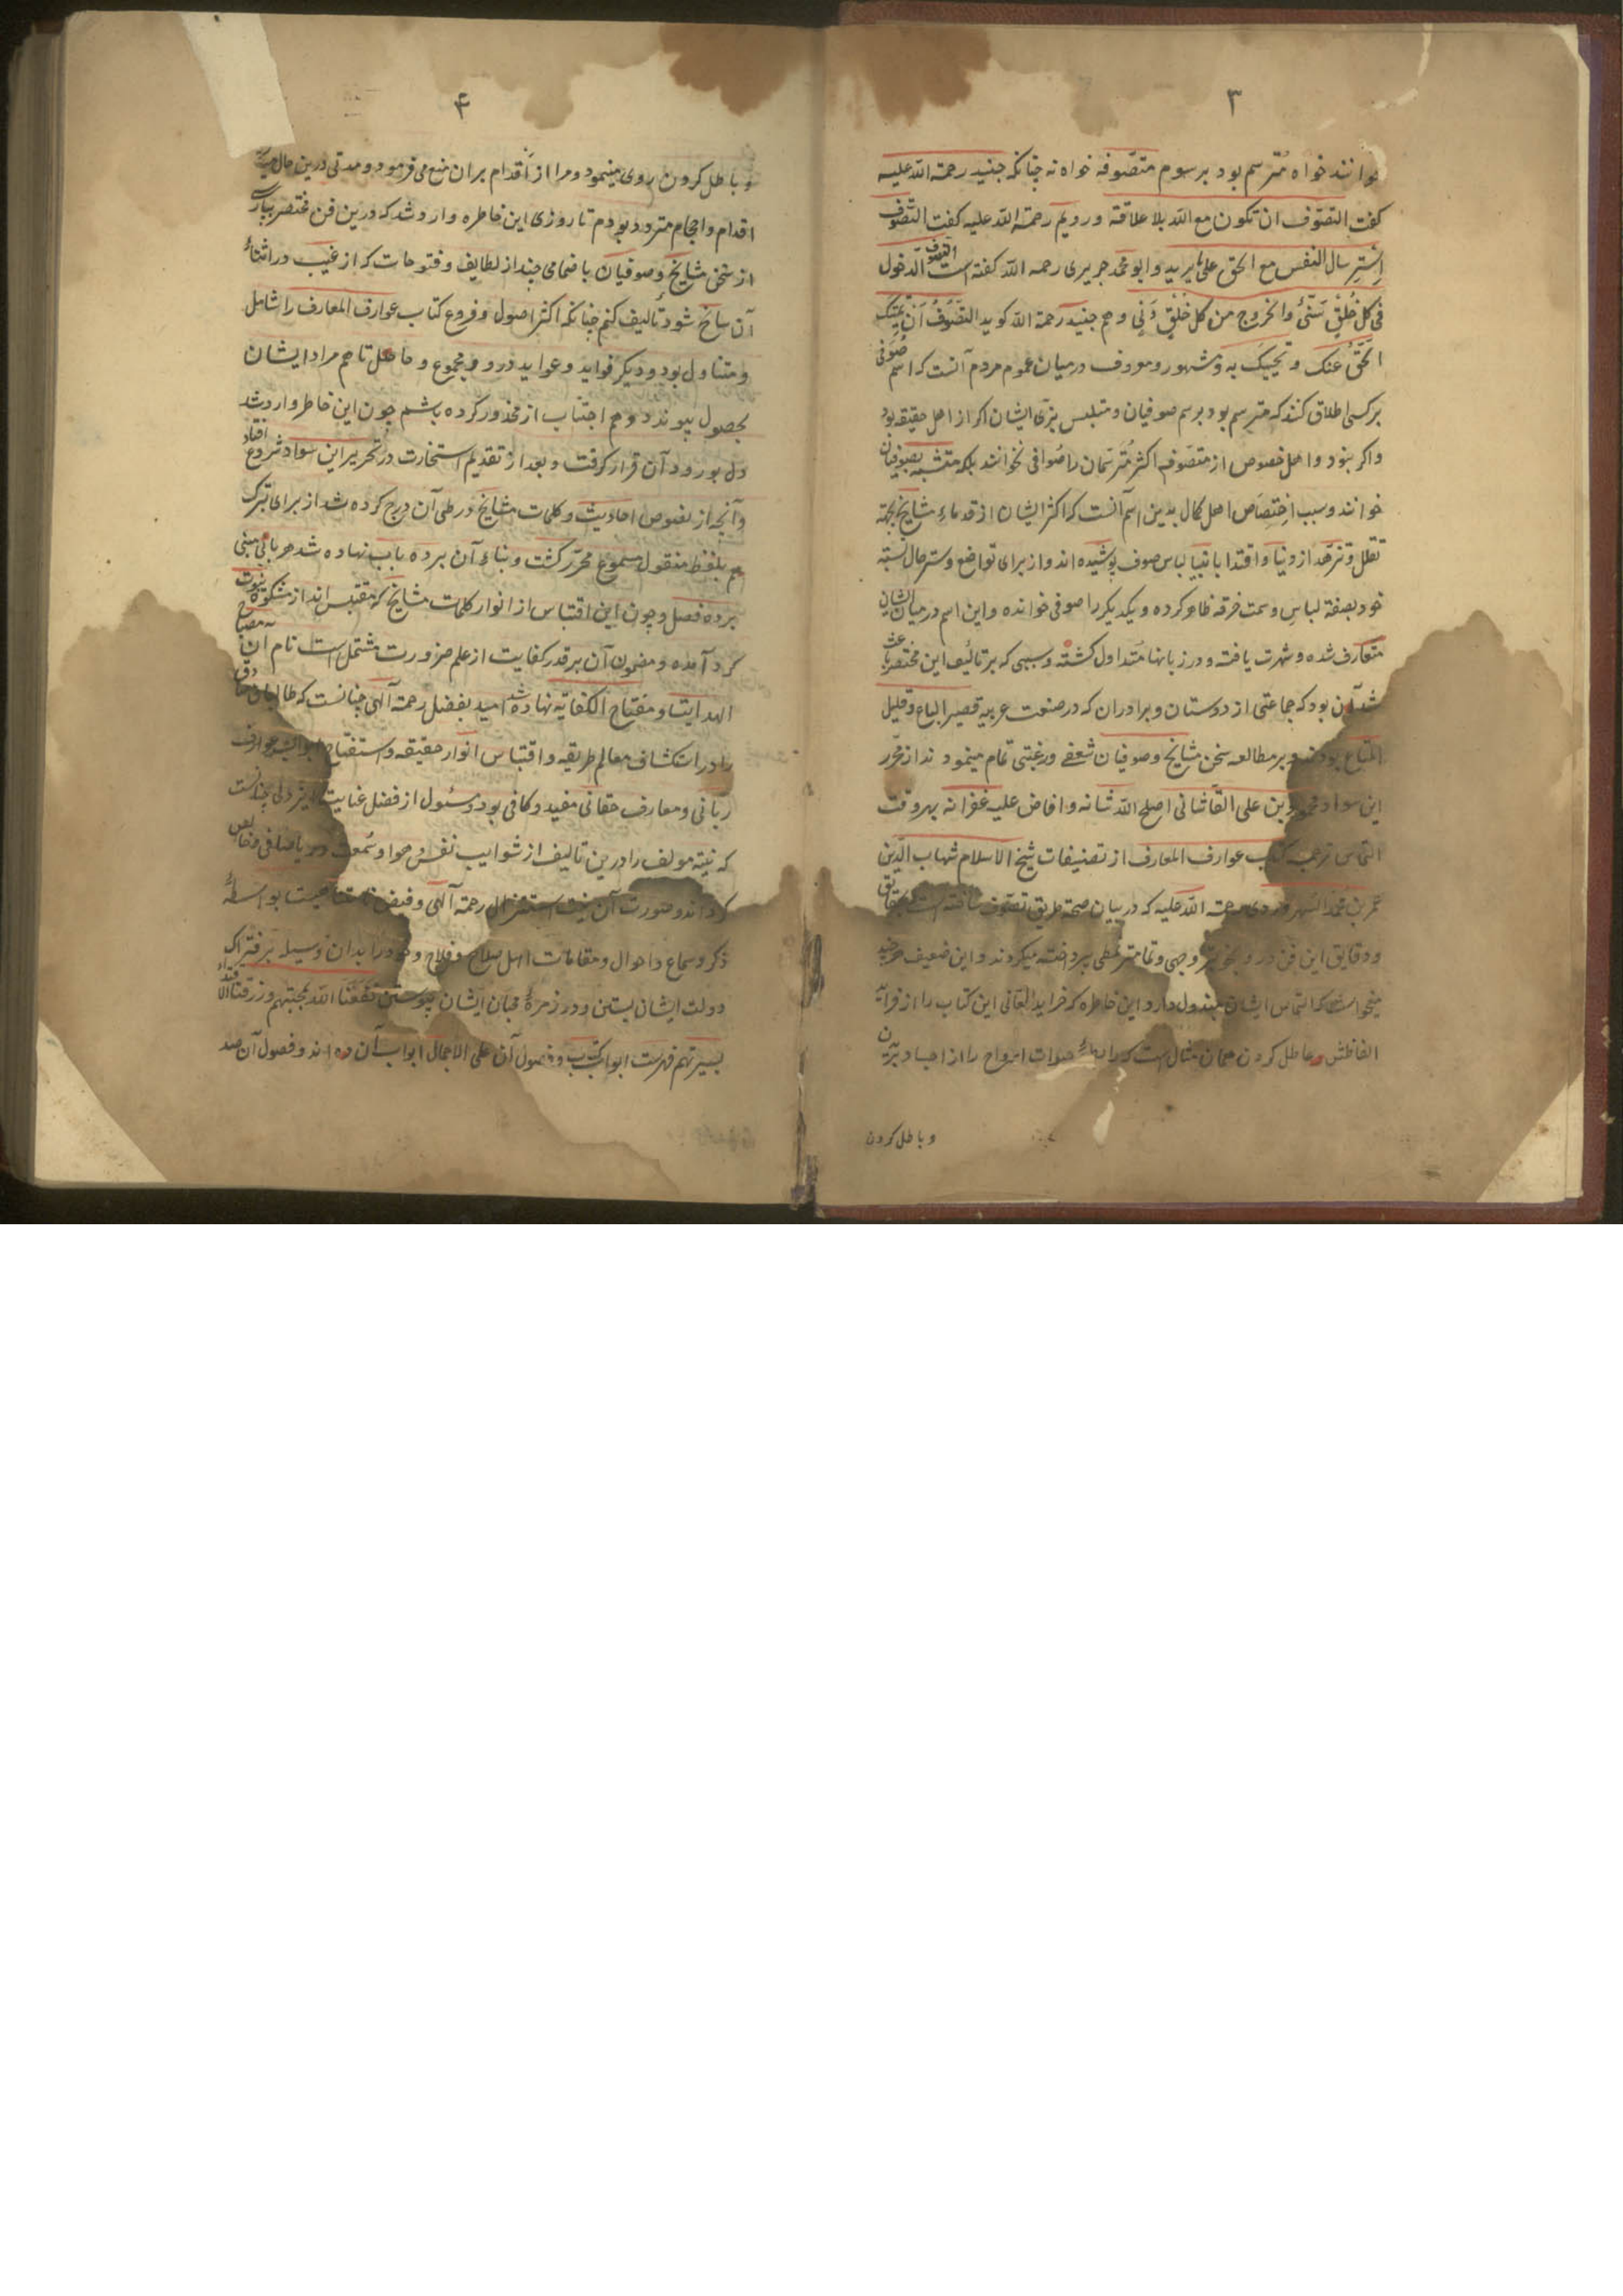 ۳
خوانند خواه مترسم بود برسوم متصوفه خواه نه چنانکه جنید رحمة الله علیه
کفت التصوف ان تکون مع الله بلا علاقة ورویم رحمة الله علیه کفت التصوف
استرسال النفس مع الحق علی ما یرید وابو محمد جریری رحمه الله کفته است التصوف الدخول
فی کل خلق سنی والخروج من کل خلق دنی وهم جنید رحمة الله کوید التصوف ان یمیتک
الحق عنک ویحییک به ومشهور ومعروف درمیان عموم مردم آنست که اسم صوفی
برکسی اطلاق کنند که مترسم بود برسم صوفیان ومتلبس بزی ایشان اکر از اهل حقیقه بود
واکر نبود واهل خصوص از متصوفه اکثر مترسمان را صوفی نخوانند بلکه متشبه بصوفیان
خوانند وسبب اختصاص اهل کمال بدین اسم آنست که اکثر ایشان از قدماء مشایخ بجهة
تقلل وتزهد از دنیا واقتدا بانبیا لباس صوف پوشیده اند واز برای تواضع وستر حال نسبة
خود بصفة لباس وسمت خرقه ظاهر کرده ویکدیکر را صوفی خوانده واین اسم درمیان ایشان
متعارف شده وشهرت یافته ودر زبانها متداول کشته وسببی که بر تالیف این مختصر باعث
شد آن بود که جماعتی از دوستان وبرادران که در صنعت عربیه قصیر الباع وقلیل
المتاع بودند وبر مطالعه سخن مشایخ وصوفیان شعفی ورغبتی تمام مینمودند از محرر
این سواد محمود بن علی القاشانی اصلح الله شانه وافاض علیه غفرانه بهر وقت
التماس ترجمه کتاب عوارف المعارف از تصنیفات شیخ الاسلام شهاب الدین
عمر بن محمد السهروردی رحمة الله علیه که در بیان صحة طریق تصوف ساخته است بحقایق
ودقایق این فن در و بخوبتر وجهی وتمامتر نمطی پرداخته میکردند واین ضعیف هرچند
میخواست که التماس ایشان مبذول دارد این خاطره که خراید المعانی این کتاب را از
الفاظش عاطل کردن همان مثال است که رابطه حیوات ارواح را از اجساد بریدن
وباطل کردن
۴
وباطل کردن روی مینمود ومرا از اقدام بران منع می فرمود ومدتی درین حال میان
اقدام واحجام متردد بودم تا روزی این خاطره وارد شد که درین فن مختصر بپارسی
از سخن مشایخ وصوفیان با ضمایمی چند از لطایف وفتوحات که از غیب در اثناء
آن سانح شود تألیف کنم چنانکه اکثر اصول وفروع کتاب عوارف المعارف را شامل
ومتناول بود ودیکر فواید وعواید درو مجموع وحاصل تا هم مراد ایشان
بحصول پیوندد وهم اجتناب از محذور کرده باشم چون این خاطر وارد شد
دل بورود آن قرار کرفت وبعد از تقدیم استخارت در تحریر این سواد شروع افتاد
وآنچه از نصوص احادیث وکلمات مشایخ در طی آن درج کرده شد از برای تبرک
هم بلفظ منقول مسموع محرر کشت وبناء آن برده باب نهاده شد هر بابی مبنی
برده فصل وچون این اقتباس از انوار کلمات مشایخ که مقتبس اند از مشکوة نبوت
کرد آمده ومضمون آن بر قدر کفایت از علم ضرورت مشتمل است نام آن مصباح
الهدایة ومفتاح الکفایة نهاده شد امید بفضل رحمة الهی چنانست که طالبان صادق
را در استکشاف معالم طریقه واقتباس انوار حقیقه واستفتاح ابواب عوارف
ربانی ومعارف حقانی مفید وکافی بود ومسئول از فضل عنایت ایزدی چنانست
که نیة مولف را درین تالیف از شوایب نفس وهوا وسمعت وریا صافی وخالص
کرداند وصورت آن نیت استنزال رحمة آلهی وفیض بواسطۀ
ذکر وسماع واحوال ومقامات اهل صلاح وفلاح وخود را بدان وسیله بر فتراک
دولت ایشان بستن ودر زمرۀ محبان ایشان پیوستن نفعنا الله بمحبتهم ورزقنا الاقتداء
بسیرتهم فهرست ابواب کتاب وفصول آن علی الاجمال ابواب آن ده اند وفصول آن صد